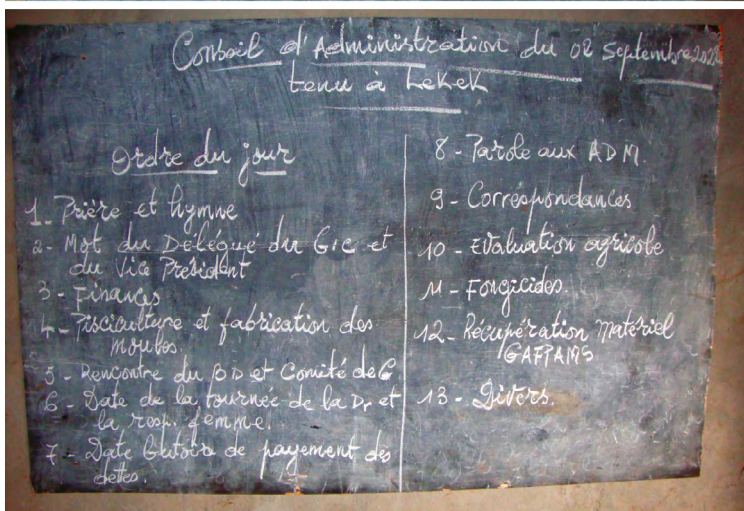 Conseil d'Administration du 02 Septembre
tenu à Lekek
Ordre du jour
1- Prière et hymne
2- Mot du Délégué du GIC et
du Vice Président
3- Finances
4- Pisciculture et fabrication des
moules.
5- Rencontre du BD et Comité de G
6- Date de la tournée de la Dr et
la resp. femme.
7- Date butoire de payement des
dettes.
8- Parole aux ADM.
9- Correspondances
10- Evaluation agricole
11- Fongicides.
12- Récupération matériel
13- Divers.